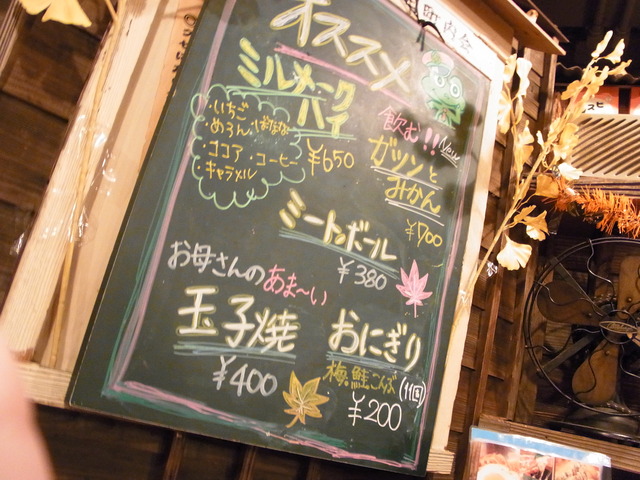 町内会
オススメ
ミルメーク
ハイ
・いちご
・めろん ・ばなな
・ココア ・コーヒー
キャラメル
¥650
飲む!! New
ガツンと
みかん
¥700
ミートボール
¥380
お母さんの あま〜い
玉子焼
¥400
おにぎり
梅・鮭・こんぶ (1個)
¥200